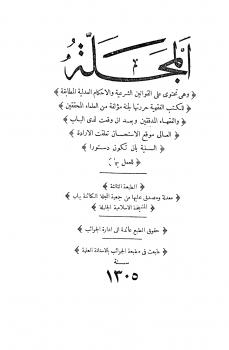 المجلة
﴿ وهى تحتوى على القوانين الشرعية والاحكام العدلية المطابقة ﴾
﴿ للكتب الفقهية حررتها لجنة مؤلفة من العلماء المحققين ﴾
﴿ والفقهاء المدققين وبعد ان وقعت لدى الباب ﴾
﴿ العالى موقع الاستحسان تعلقت الارادة ﴾
﴿ السنية بان تكون دستورا ﴾
﴿ للعمل بها ﴾
﴿ الطبعة الثالثة ﴾
﴿ معدلة ومصدق عليها من جمعية المجلة الكائنة بباب ﴾
﴿ المشيخة الاسلامية الجليلة ﴾
﴿ حقوق الطبع عائدة الى ادارة الجوائب ﴾
﴿ طبعت فى مطبعة الجوائب بالاستانة العلية ﴾
سنة
١٣٠٥